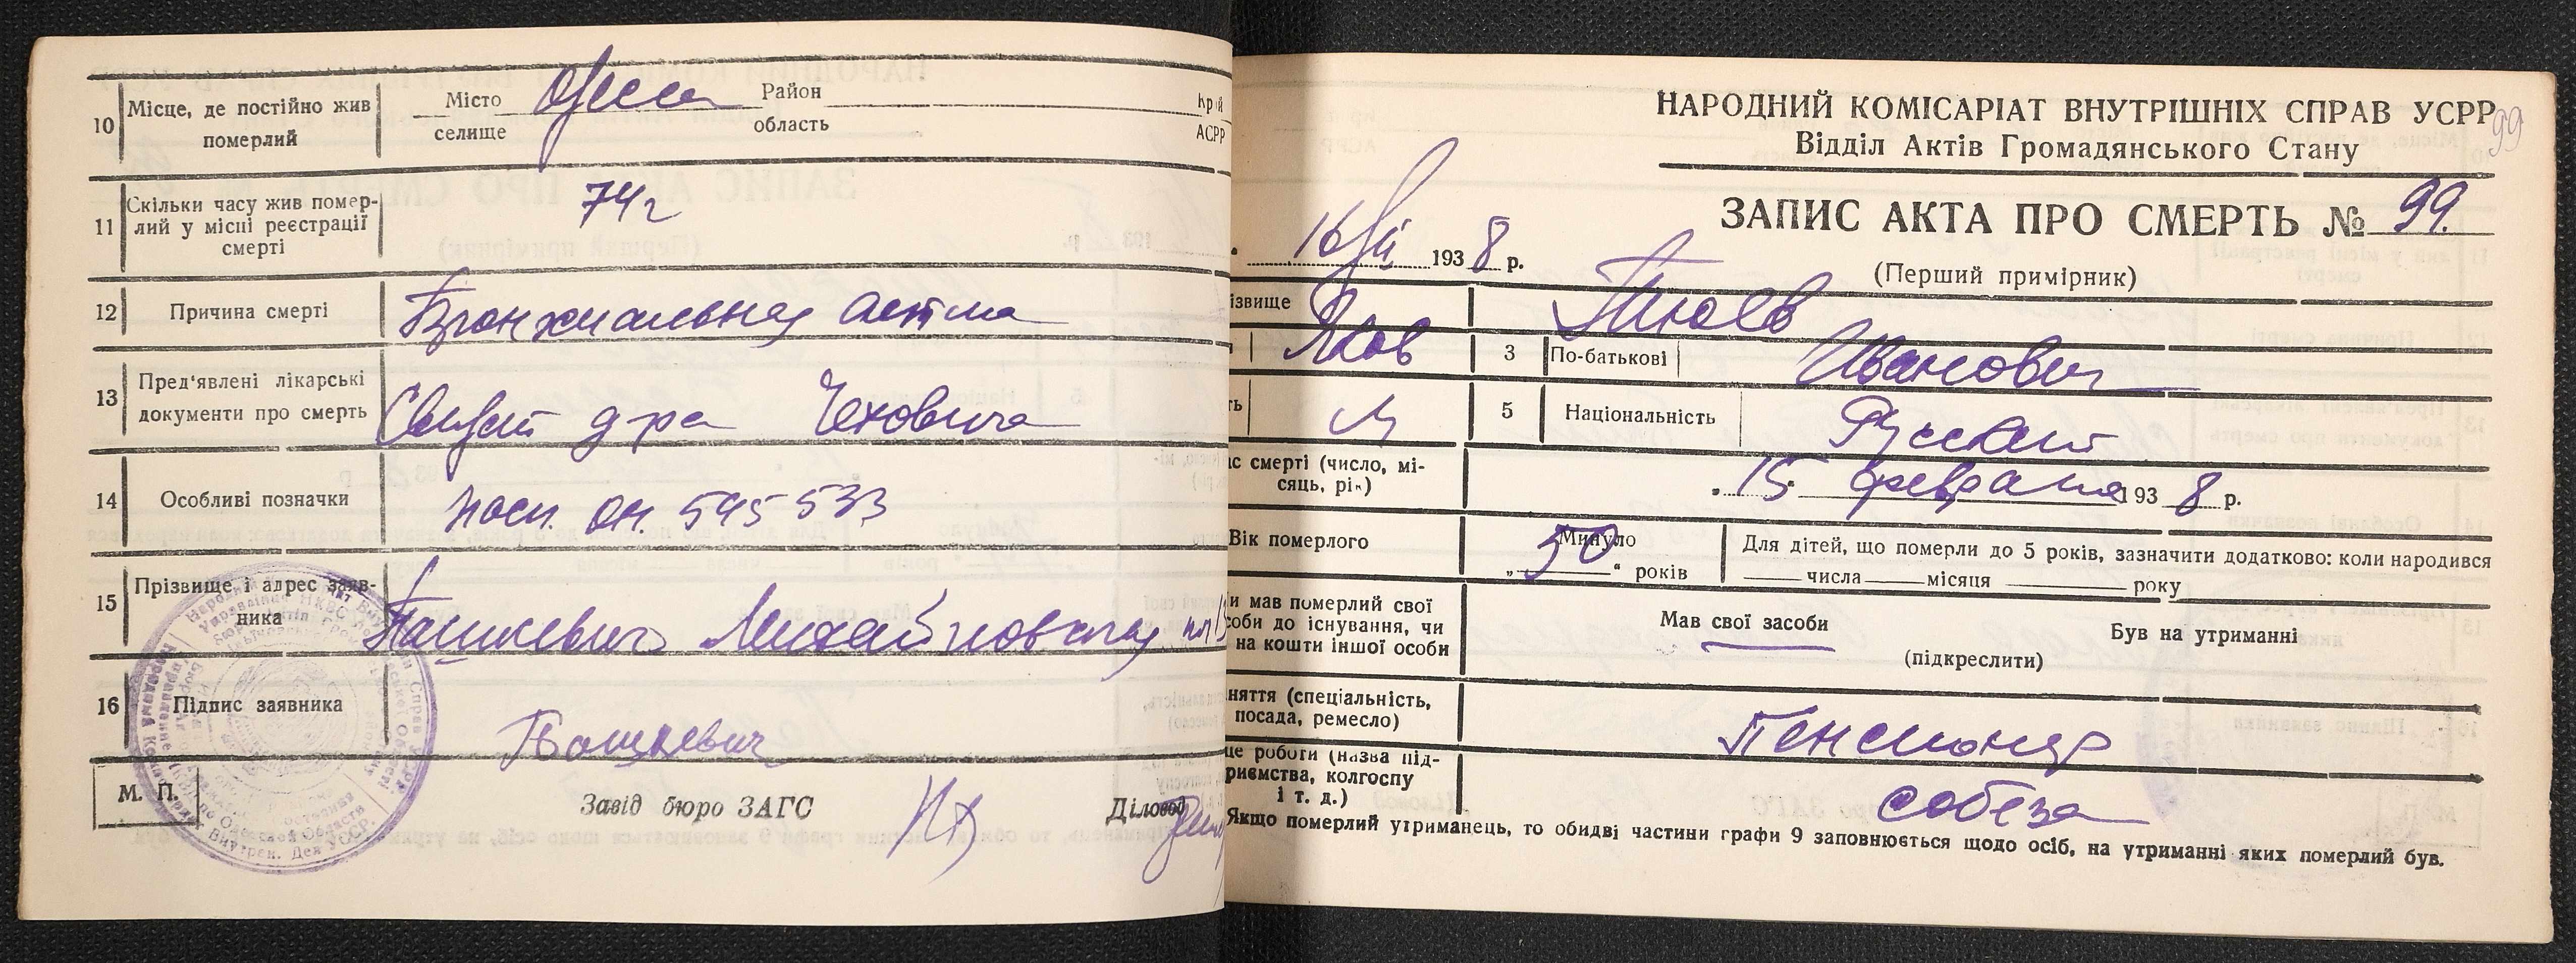 10
Місце, де постійно жив
померлий
Місто Одесса Район Край
селище область АСРР
11
Скільки часу жив помер-
лий у місні реєстрації
смерті
74 г
12
Причина смерті
Бронхиальная астма
13
Пред'явлені лікарські
документи про смерть
д-ра Чеховича
14
Особливі позначки
545533
15
Прізвище і адрес заяв-
ника
Пашкевич Михайловская пл
16
Підпис заявника
Пашкевич
М. П.
Завід бюро ЗАГС
Діловод
НАРОДНИЙ КОМІСАРІАТ ВНУТРІШНІХ СПРАВ УСРР
99
Відділ Актів Громадянського Стану
ЗАПИС АКТА ПРО СМЕРТЬ № 99.
16 1938 р.
(Перший примірник)
ізвище
Яков
3
По-батькові
Иванович
ть
М
5
Національність
Русский
ас смерті (число, мі-
сяць, рік)
„15" февраля 1938 р.
Вік померлого
Минуло
„50" років
Для дітей, що померли до 5 років, зазначити додатково: коли народився
числа місяця року
и мав померлий свої
соби до існування, чи
на кошти іншої особи
Мав свої засоби
Був на утриманні
(підкреслити)
няття (спеціальність,
посада, ремесло)
Пенсионер
це роботи (назва під-
приємства, колгоспу
і т. д.)
собеза
Якщо померлий утриманець, то обидві частини графи 9 заповнюється щодо осіб, на утриманні яких померлий був.